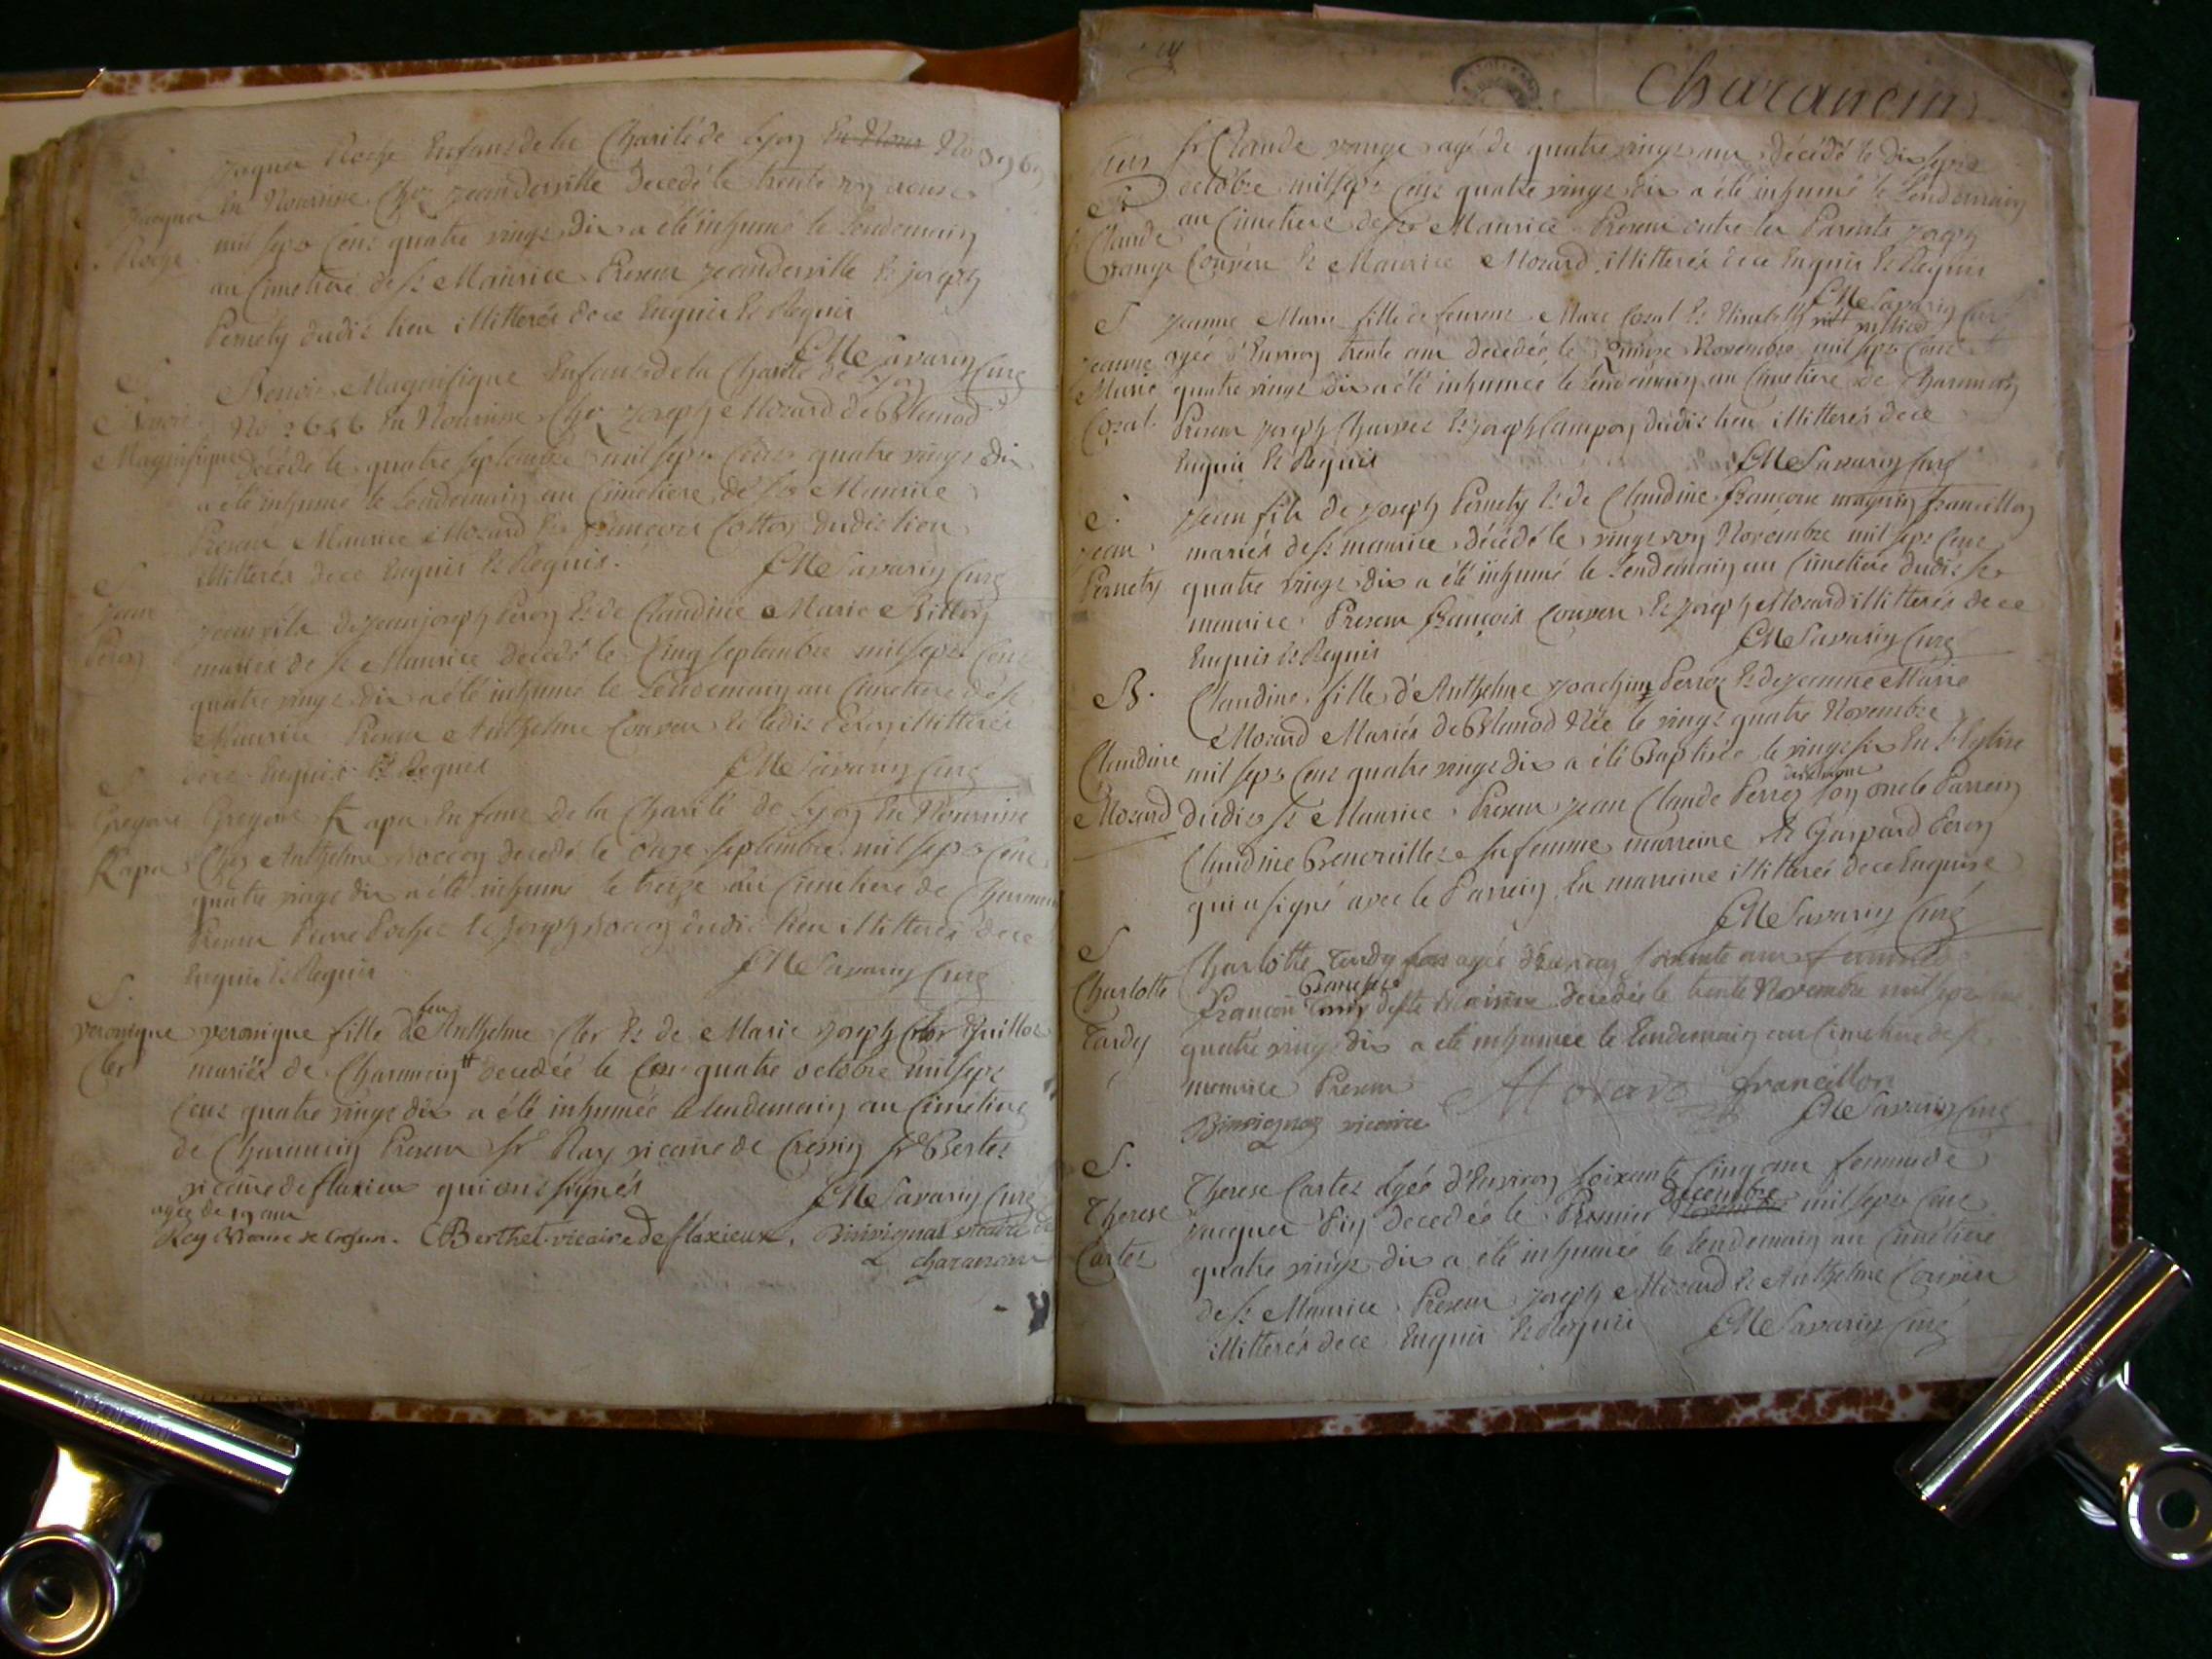 Jaques Roche Enfans de la Charité de Lyon No 3969
en Nourrisse chez jean derville Decedé le trente un aoust
mil sept Cent quatre vingt dix a été inhumé le Lendemain
au Cimetiere de St Maurice Present jean derville Et joseph
Pernety dudit lieu illitterés de ce Enquis Et Requis
CM Savarin Curé
Jacques
Roche
S
Benoit Magnifique Enfans de la Charité de Lyon
No 2656 En Nourrisse Chez joseph Mozard de
Décédé le quatre septembre mil sept Cent quatre vingt dix
a été inhumé le Lendemain au Cimetiere de St Maurice
Present Maurice Mozard Et françois Cotton dudit lieu
illitterés de ce Enquis Et Requis. CM Savarin Curé
Benoit
Magnifique
S
Jean
Peron
jean fils de jean joseph Peron Et de Claudine Marie Billon
mariés de St Maurice decedé le Cinq septembre mil sept Cent
quatre vingt dix a été inhumé le Lendemain au Cimetiere de St
Maurice Present Anthelme Couven Et ledit Peron illitterés
de ce Enquis Et Requis CM Savarin Curé
S
Gregoire
Kapa
Gregoire Kapa Enfant de la Charité de Lyon En Nourrisse
Chez Anthelme decedé le Onze septembre mil sept Cent
quatre vingt dix a été inhumé le treize au Cimetiere de
Present Pierre Et joseph dudit lieu illitterés de ce
Enquis Et Requis CM Savarin Curé
S.
veronique
Cler
veronique fille de feu Anthelme Cler Et de Marie joseph Guillot
mariés de Charancin decedée le quatre octobre mil sept
Cent quatre vingt dix a été inhumée le lendemain au Cimetiere
de Charancin Present Sr Rey vicaire de Cressin Sr Bertet
vicaire de flaxieu qui ont signés CM Savarin Curé
agée de 19 ans
Rey vicaire de Cressin. Berthet vicaire de flaxieux. Binvignat vicaire de
charancin
Charancin
Sr Claude vange agé de quatre vingt ans décédé le Dix sept
octobre mil sept Cent quatre vingt dix a été inhumé le Lendemain
au Cimetiere de St Maurice Present outre les Parents joseph
Couven Et Maurice Mozard illitterés de ce Enquis Et Requis
CM Savarin Curé
Sr
Claude
vange
S
Jeanne
Marie
Cozat
Jeanne Marie fille de Laurent Marc Cozat Et Elisabeth
agée d'Environ trente ans decedée le Quinze Novembre mil sept Cent
quatre vingt dix a été inhumée le Lendemain au Cimetiere de Charancin
Present joseph Charvet Et joseph Campon dudit lieu illitterés de ce
Enquis Et Requis CM Savarin Curé
S.
Jean
Pernety
Jean fils de joseph Pernety Et de Claudine francoise magnin francillon
mariés de St maurice décédé le vingt un Novembre mil sept Cent
quatre vingt dix a été inhumé le Lendemain au Cimetiere dudit St
maurice Present françois Couven Et joseph Mozard illitterés de ce
Enquis Et Requis CM Savarin Curé
B.
Claudine
Mozard
Claudine fille d'Anthelme joachim Perroz Et de jeanne Marie
Mozard Mariés de Née le vingt quatre Novembre
mil sept Cent quatre vingt dix a été Baptisée le vingt six En L'eglise
dudit St Maurice Present jean Claude Perroz son oncle Parrein
Claudine sa femme marreine Et Gaspard Peron
qui a signé avec le Parrein La marreine illitterée de ce Enquise
CM Savarin Curé
S
Charlotte
Tardy
Charlotte Tardy agée d'Environ ans femme
francois de St Maurice Decedée le trente Novembre mil sept Cent
quatre vingt dix a été inhumée le Lendemain au Cimetiere de St
maurice Present Mozard francillon
Binvignat vicaire CM Savarin Curé
S.
Therese
Cartet
Therese Cartet Agée d'Environ soixante Cinq ans femme de
jacques decedée le Premier decembre mil sept Cent
quatre vingt dix a été inhumée le lendemain au Cimetiere
de St Maurice Present joseph Mozard Et Anthelme Couven
illitterés de ce Enquis Et Requis CM Savarin Curé